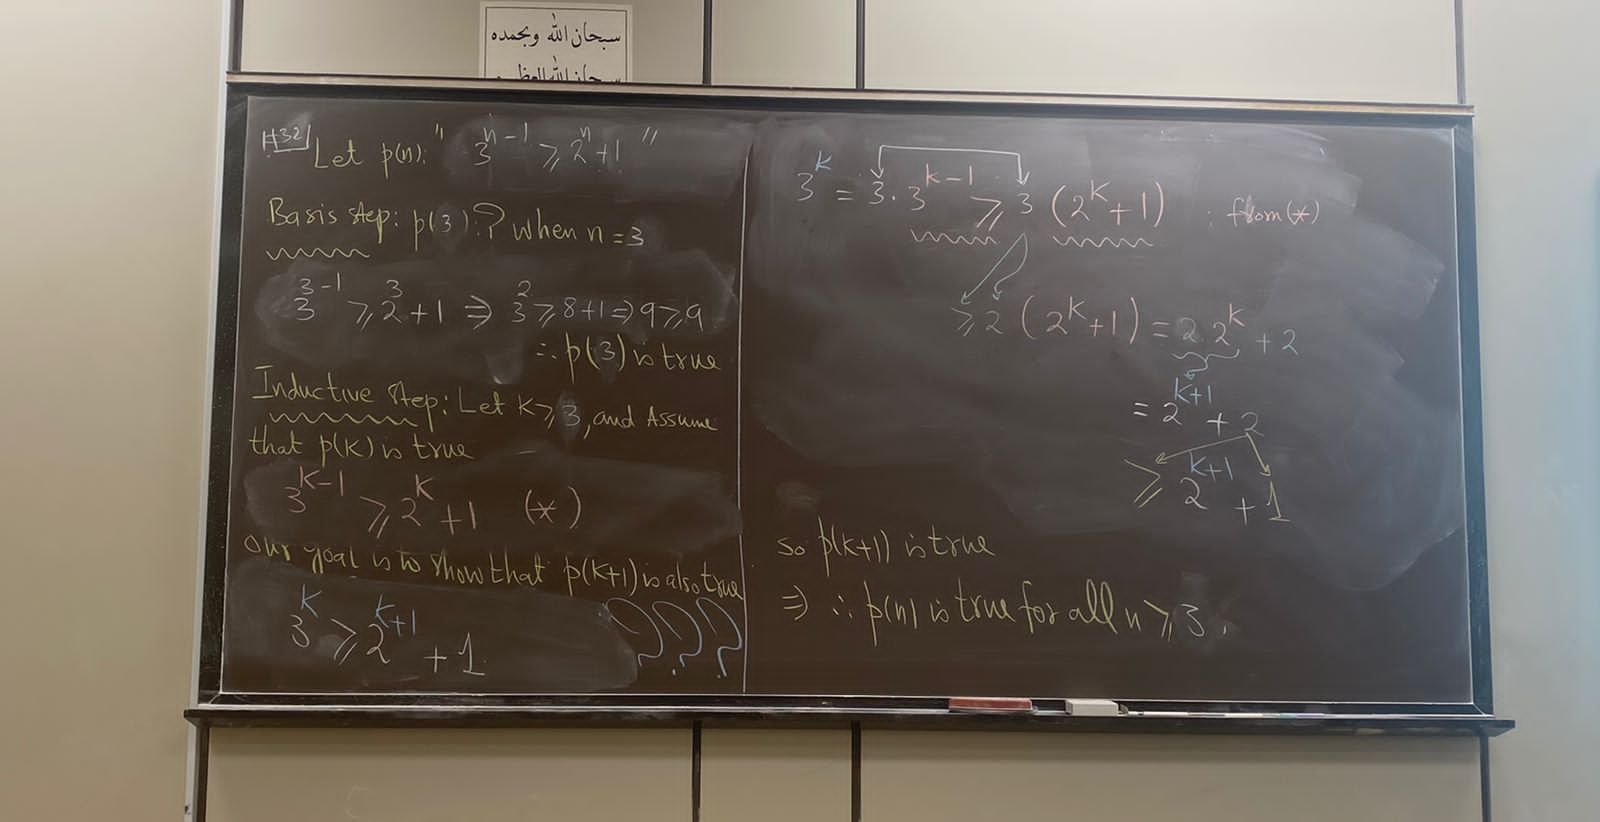 سبحان الله وبحمده
سبحان الله العظيم
H32 Let p(n): " 3^{n-1} ⩾ 2^n + 1 "
Basis step: p(3)? when n = 3
3^{3-1} ⩾ 2^3 + 1 ⇒ 3^2 ⩾ 8+1 ⇒ 9 ⩾ 9
∴ p(3) is true
Inductive step: Let K ⩾ 3, and Assume
that p(K) is true
3^{K-1} ⩾ 2^K + 1 (*)
our goal is to show that p(K+1) is also true
3^K ⩾ 2^{K+1} + 1 ???
3^K = 3 · 3^{K-1} ⩾ 3 (2^K + 1) ; from (*)
⩾ 2 (2^K + 1) = 2 · 2^K + 2
= 2^{K+1} + 2
⩾ 2^{K+1} + 1
so p(K+1) is true
⇒ ∴ p(n) is true for all n ⩾ 3.